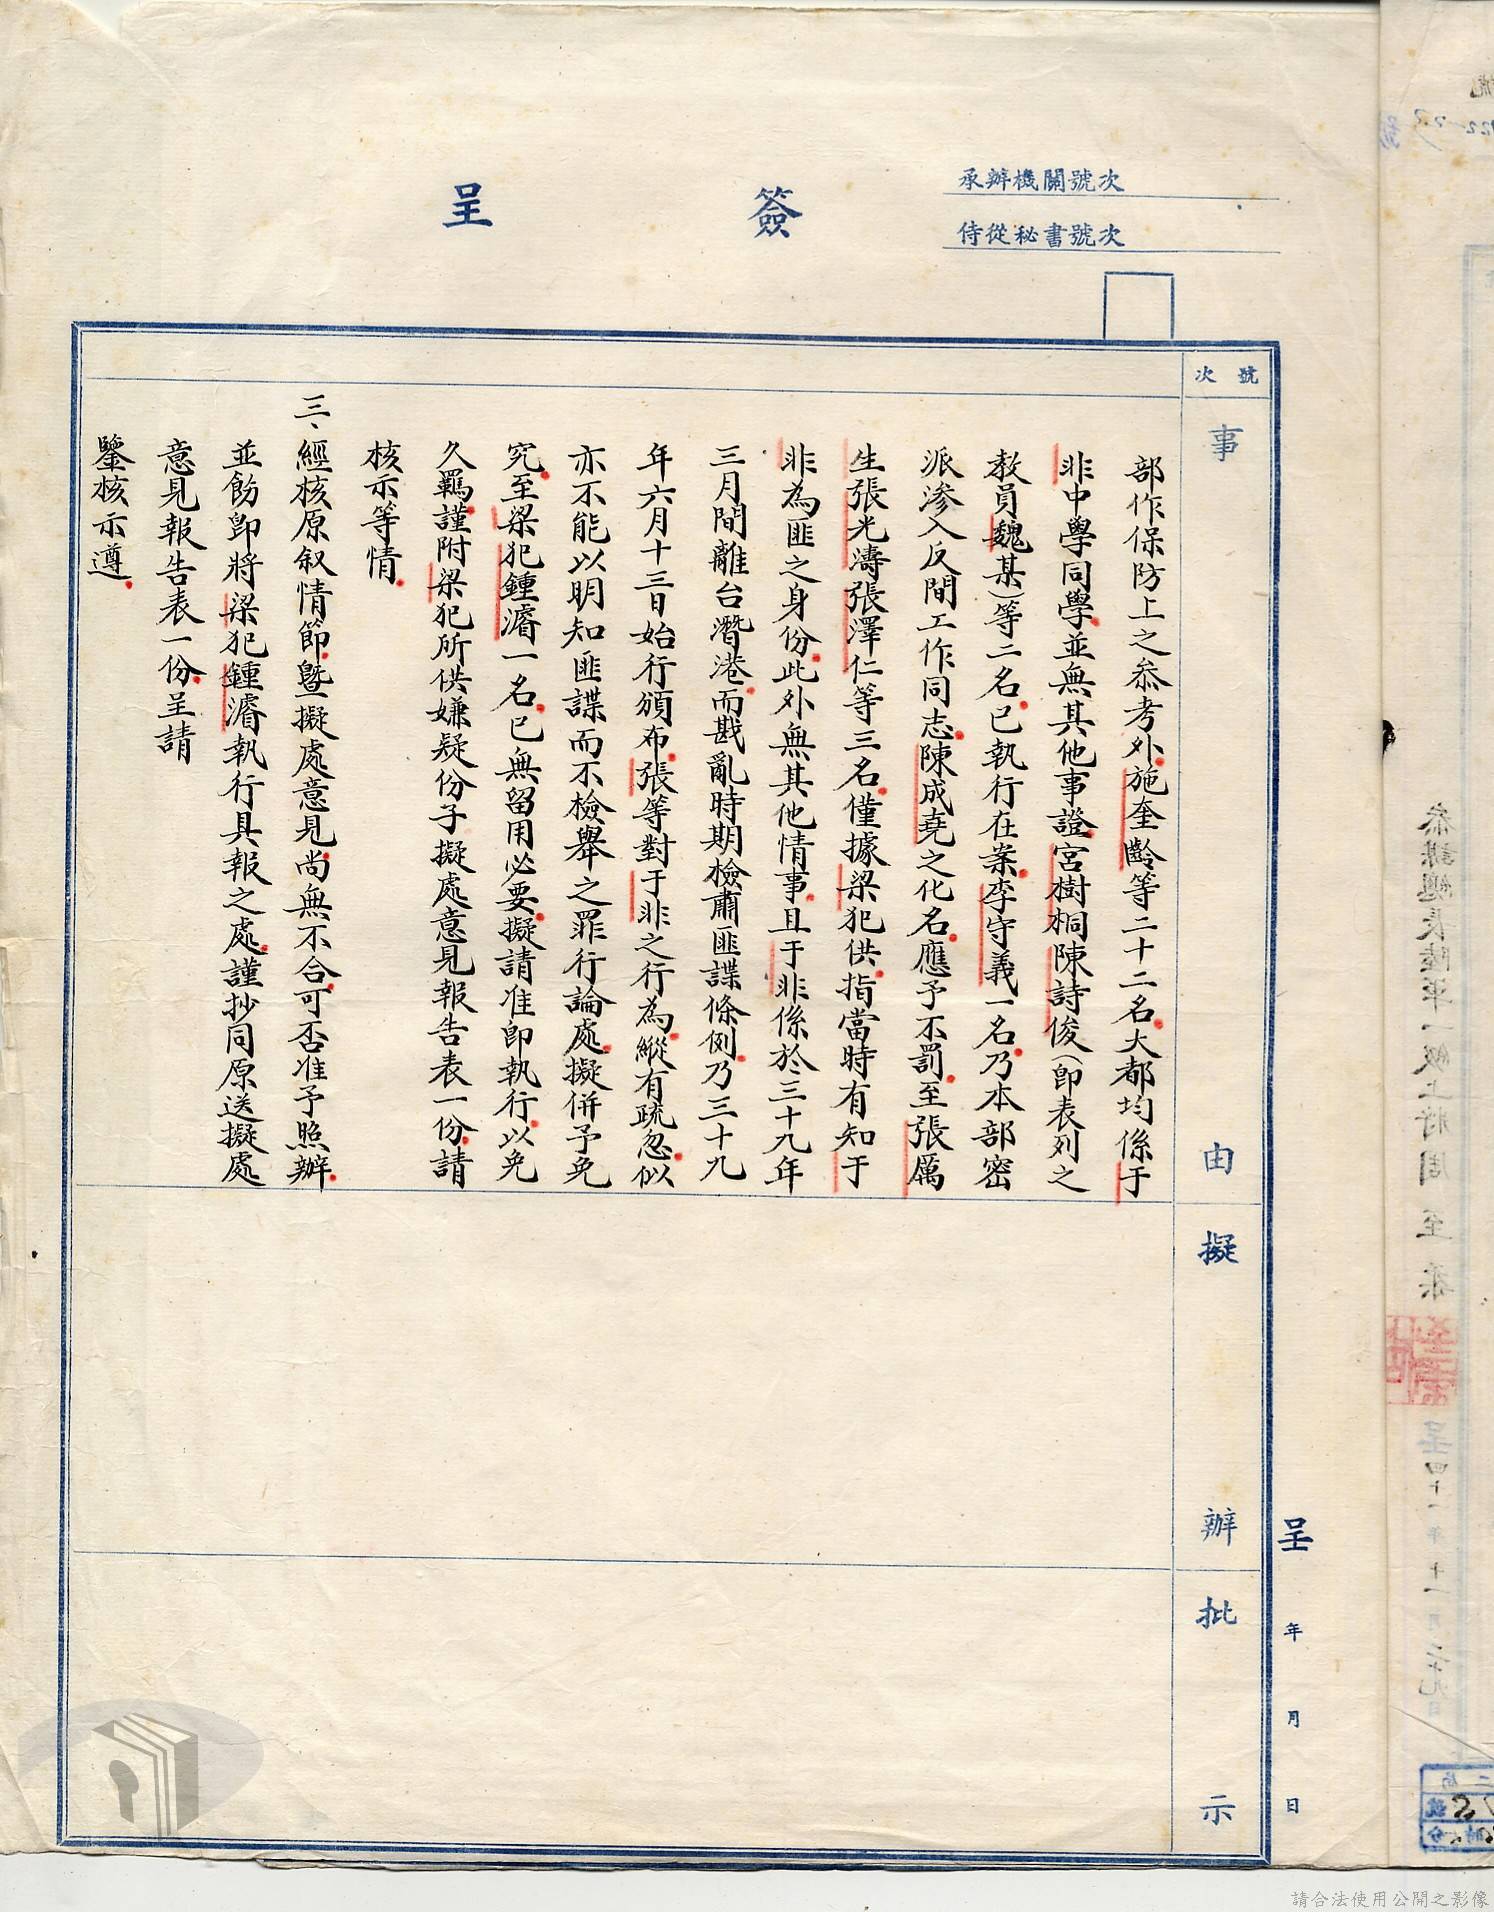 承辦機關號次
侍從秘書號次
簽呈
號次
事由
擬辦
批示
部作保防上之叅考外施奎齡等二十二名大都均係于
非中學同學並無其他事證宮樹桐陳詩俊(即表列之
教員魏某)等二名已執行在案李守義一名乃本部密
派滲入反間工作同志陳成堯之化名應予不罰至張厲
生張光濤張澤仁等三名僅據梁犯供指當時有知于
非為匪之身份此外無其他情事且于非係於三十九年
三月間離台潛港而戡亂時期檢肅匪諜條例乃三十九
年六月十三日始行頒布張等對于非之行為縱有疏忽似
亦不能以明知匪諜而不檢舉之罪行論處擬併予免
究至梁犯鍾濬一名已無留用必要擬請准即執行以免
久羈謹附梁犯所供嫌疑份子擬處意見報告表一份請
核示等情
三、經核原叙情節暨擬處意見尚無不合可否准予照辦
並飭即將梁犯鍾濬執行具報之處謹抄同原送擬處
意見報告表一份呈請
鑒核示遵
呈 年 月 日
叅謀總長陸軍一級上將周至柔
呈四十一年十一月二十九日
請合法使用公開之影像